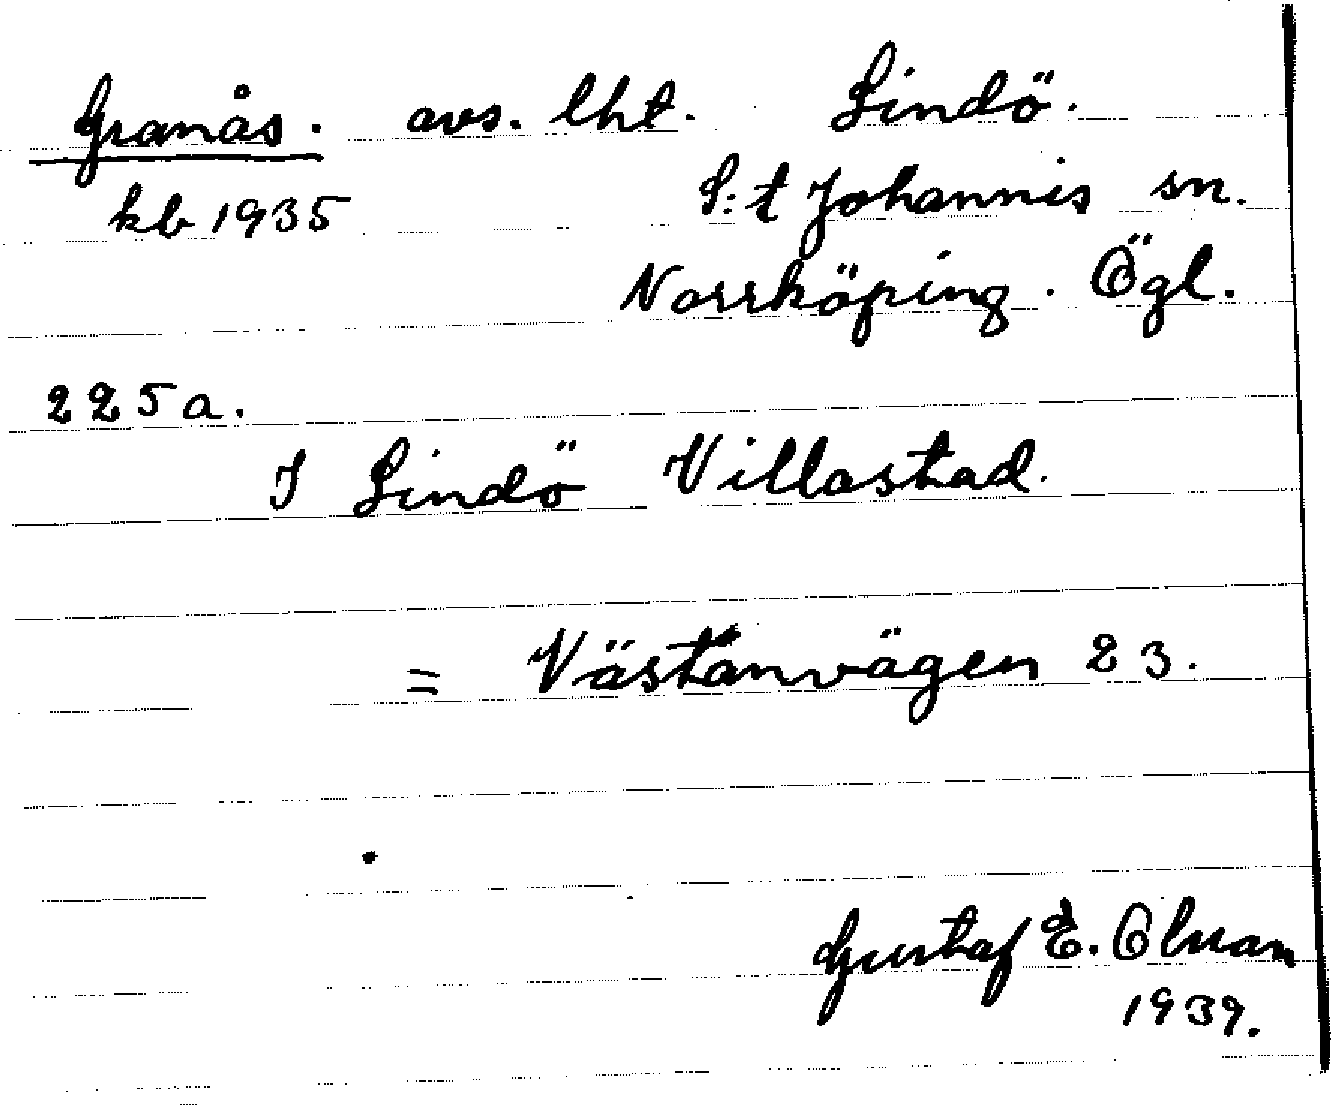 Granås. avs. lht. Lindö.
kb 1935 S:t Johannis sn.
Norrköping. Ögl.
225a.
I Lindö Villastad.
= Västanvägen 23.
Gustaf E.
1939.